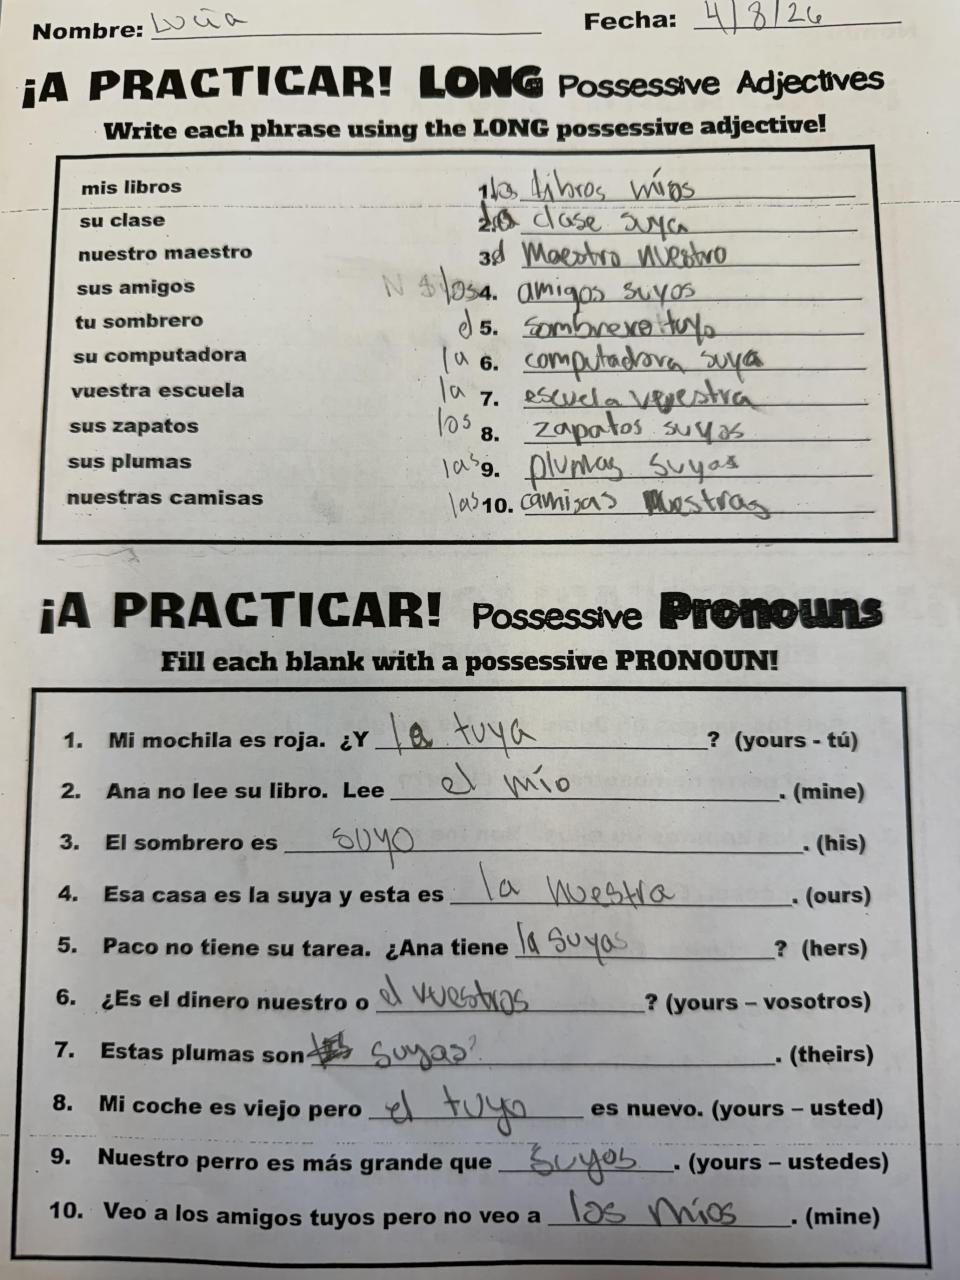 Nombre: Lucía Fecha: 4/8/26
¡A PRACTICAR! LONG Possessive Adjectives
Write each phrase using the LONG possessive adjective!
mis libros 1. los libros míos
su clase 2. la clase suya
nuestro maestro 3. el maestro nuestro
sus amigos los 4. amigos suyos
tu sombrero el 5. sombrero tuyo
su computadora la 6. computadora suya
vuestra escuela la 7. escuela vuestra
sus zapatos los 8. zapatos suyos
sus plumas las 9. plumas suyas
nuestras camisas las 10. camisas nuestras
¡A PRACTICAR! Possessive Pronouns
Fill each blank with a possessive PRONOUN!
1. Mi mochila es roja. ¿Y la tuya ? (yours - tú)
2. Ana no lee su libro. Lee el mío . (mine)
3. El sombrero es suyo . (his)
4. Esa casa es la suya y esta es la nuestra . (ours)
5. Paco no tiene su tarea. ¿Ana tiene la suyas ? (hers)
6. ¿Es el dinero nuestro o el vuestros ? (yours – vosotros)
7. Estas plumas son suyas . (theirs)
8. Mi coche es viejo pero el tuyo es nuevo. (yours – usted)
9. Nuestro perro es más grande que suyos . (yours – ustedes)
10. Veo a los amigos tuyos pero no veo a los míos . (mine)